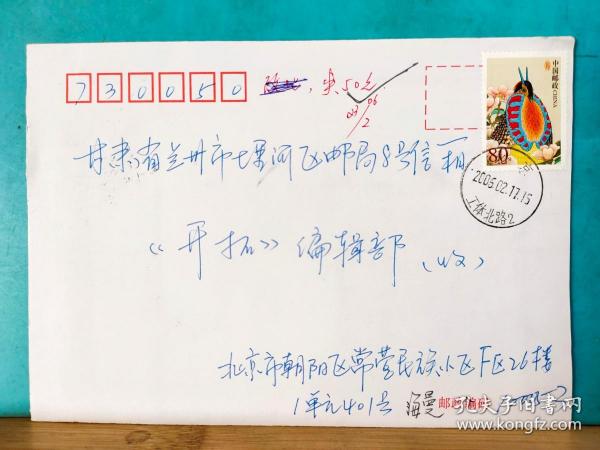 730050
中国邮政
CHINA
80分
2006.02.17.15
工体北路2
甘肃省兰州市七里河区邮局8号信箱
《开拓》编辑部（收）
北京市朝阳区常营民族小区F区26楼
1单元401号 海曼
邮政编码
孔夫子旧书网
www.kongfz.com